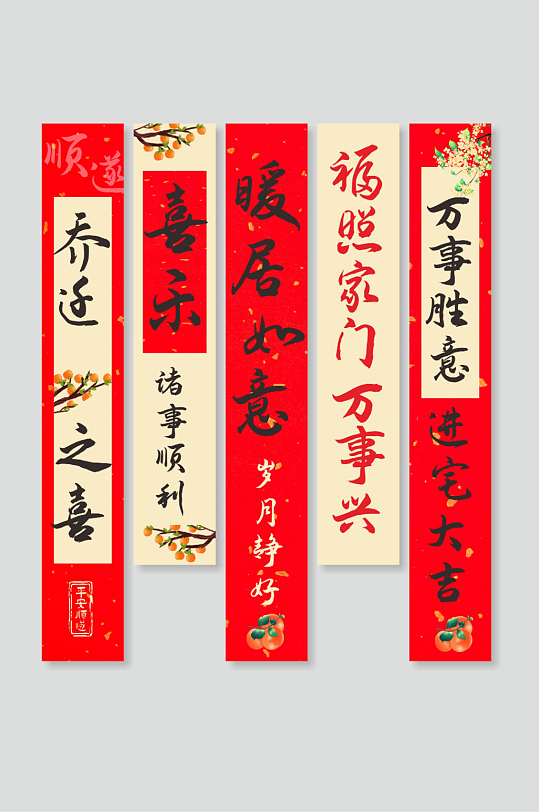 顺遂
乔迁之喜
平安顺遂
喜乐
诸事顺利
暖居如意
岁月静好
福照家门万事兴
万事胜意
进宅大吉